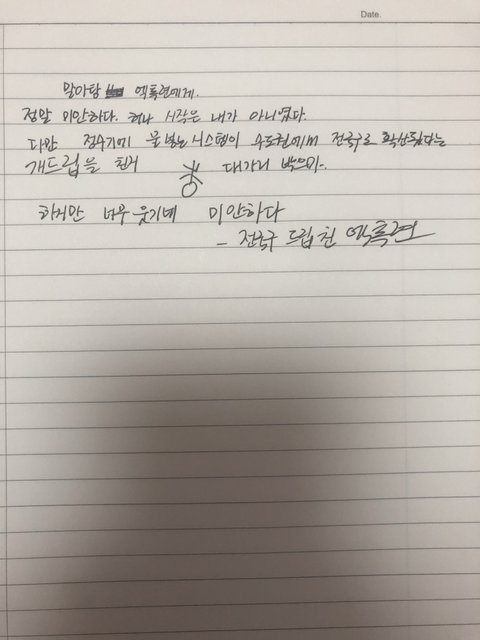 Date.
말아탐 엑톡련에게.
정말 미안하다. 허나 시작은 내가 아니였다.
다만 정수기에 물 넣는 시스템이 수도권에서 전국구로 확산됐다는
개드립을 친거 대가리 박으마..
하지만 너무 웃기네 미안하다
- 전국구 드립 친 엑톡련